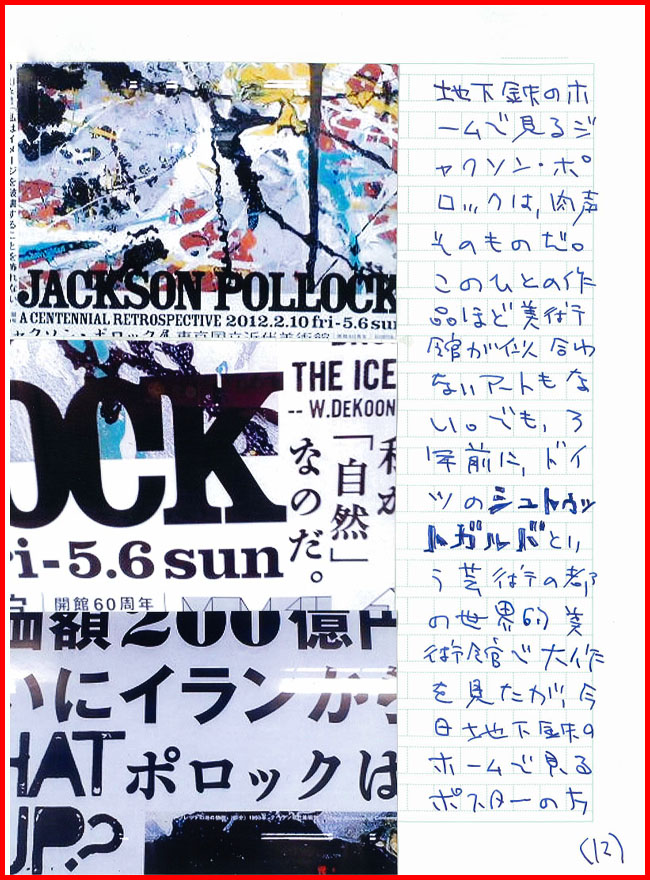 私はイメージを破壊することを怖れない。
JACKSON POLLOCK
A CENTENNIAL RETROSPECTIVE 2012.2.10 fri-5.6 sun
ャクソン・ポロック展 東京国立近代美術館
OCK
THE ICE
-- W.DEKOON
私が
「自然」
なのだ。
ri-5.6 sun
開館60周年
価額200億円
いにイランから
HAT ポロックは
UP?
地下鉄のホ
ームで見るジ
ャクソン・ポ
ロックは、肉声
そのものだ。
このひとの作
品ほど美術
館が似合わ
ないアートもな
い。でも、3
年前に、ドイ
ツのシュトゥッ
トガルバとい
う芸術の都
の世界的美
術館で大作
を見たが、今
日地下鉄の
ホームで見る
ポスターの方
(12)